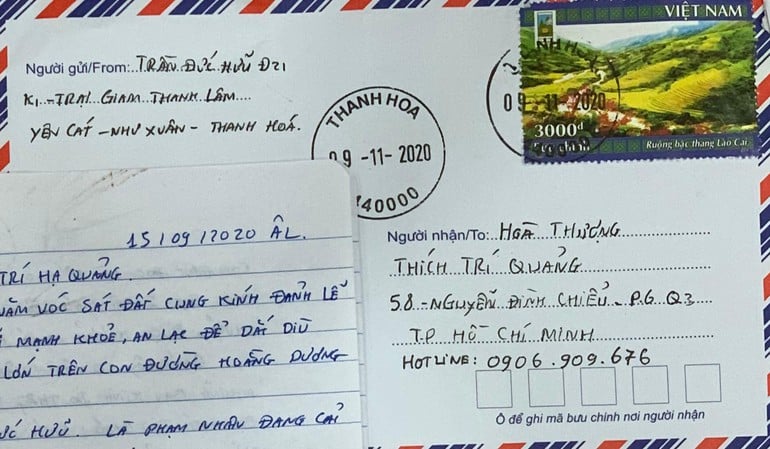 VIỆT NAM
3000đ
Ruộng bậc thang Lào Cai
09-11-2020
THANH HOA
09-11-2020
440000
Người gửi/From: TRẦN ĐỨC HỮU Đ21
K1 - TRẠI GIAM THANH LÂM
YÊN CÁT - NHƯ XUÂN - THANH HOÁ.
Người nhận/To: HOÀ THƯỢNG
THÍCH TRÍ QUẢNG
58 - NGUYỄN ĐÌNH CHIỂU - P.6 Q3
T.P HỒ CHÍ MINH
HOTLINE: 0906.909.676
Ô để ghi mã bưu chính nơi người nhận
15/09/2020 ÂL.
TRÍ HẠ QUẢNG.
VÓC SÁT ĐẤT CUNG KÍNH ĐẢNH LỄ
MẠNH KHOẺ, AN LẠC ĐỂ DẪT DIÙ
LỚN TRÊN CON ĐƯỜNG HOẰNG DƯƠNG
HỮU. LÀ PHẠM NHÂN ĐANG CẢI